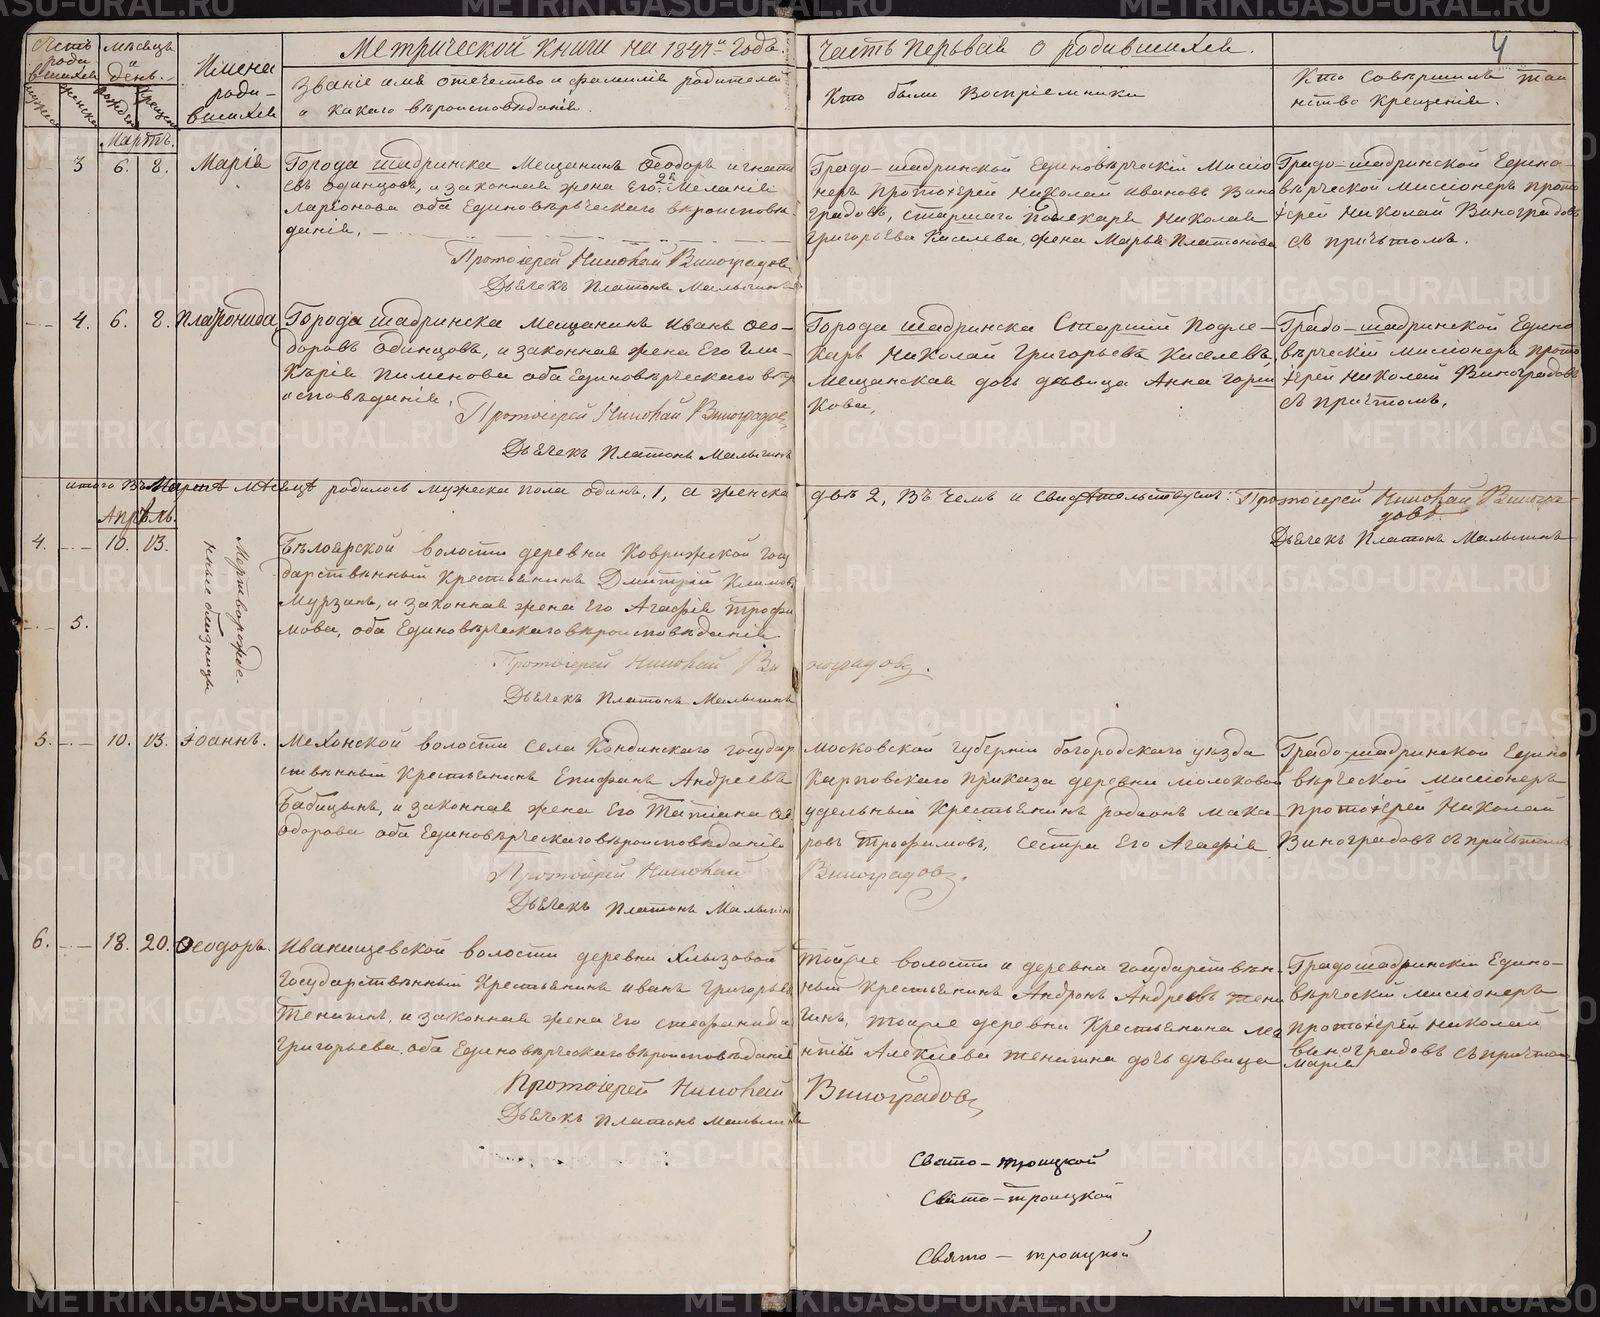 Метрической книги на 1847й года.
Часть перьвая о родившихся.
4
Счетъ родившихся
мужеска
женска
месяцъ и день.
рожден
крещен
Имена родившихся
Званіе имя отечество и фамилія родителей
и какаго вѣроисповѣданія.
Кто были Воспріемники
Кто совѣршилъ таи
нство крещенія.
Мартъ.
3 6. 8. Марія
Города шадринска Мещанинъ Ѳеодоръ игнати
евъ одинцовъ, и законная жена Его 2я Меланія
Ларіонова оба Единовѣрческаго вѣроисповѣ
данія.
Протоіерей Николай Виноградовъ
Дьячекъ Платонъ Малыгинъ
Градо-шадринской Единовѣрческій Мисіо
неръ протоіерей николай ивановъ Вино
градовъ, старшаго Подлекаря николая
григорьева Киселева, жена Марья Платонова
Градо-шадринской Едино-
вѣрческой миссіонеръ прото
іерей николай Виноградовъ
съ причьтомъ.
4. 6. 8. Платонида
Города шадринска мещанинъ иванъ Ѳео-
доровъ одинцовъ, и законная жена Его Гли-
керія пименова оба единовѣрческаго вѣр
исповѣданія,
Протоіерей Николай Виноградовъ
Дьячекъ Платонъ Малыгинъ
Города шадринска Старшій подле-
карь николай григорьевъ Киселевъ,
мещанская дочь дѣвица Анна горш
кова,
Градо-шадринской Едино
вѣрческій мисіонеръ прото
іерей николай Виноградовъ
съ причтомъ.
итого въ Мартѣ мѣсяцѣ родилось мужеска пола одинъ, 1, а женска
двѣ 2, въ чемъ и свидѣтельствуемъ: Протоіерей Николай Виногра-
довъ.
Дьячекъ Платонъ Малыгинъ
Апрѣль.
4. 10. 13.
5.
Мертворожде-
нные близнецы
Бѣлоярской волости деревни Коврижской госу
дарственный крестьянинъ Дмитрій Климовъ
Мурзинъ, и законная жена Его Агафія трофи
мова, оба Единовѣрческаго вѣроисповѣданія.
Протоіерей Николай Ви
ноградовъ.
Дьячекъ Платонъ Малыгинъ
5. 10. 13. іоаннъ.
Мехонской волости села Кондинскаго государ
ственный крестьянинъ Епифанъ Андреевъ
Бабицынъ, и законная жена Его Татіана Ѳе
дорова оба Единовѣрческаго вѣроисповѣданія
Протоіерей Николай
Виноградовъ.
Дьячекъ Платонъ Малыгинъ
московской губерніи богородскаго уѣзда
Карповскаго приказа деревни молоковой
удельный крестьянинъ родіонъ мака
ровъ трофимовъ, сестра Его Агафія
Градо-шадринской Едино
вѣрческой миссіонеръ
протоіерей николай
Виноградовъ съ причьтомъ
6. 18. 20. Ѳеодоръ.
Иванищевской волости деревни Хлызовой
государственный крестьянинъ иванъ григорьевъ
Тенигинъ, и законная жена Его стефанида
григорьева, оба Единовѣрческаго вѣроисповѣданія
Протоіерей Николай
Виноградовъ
Дьячекъ Платонъ Малыгинъ
Тойже волости и деревни государствен-
ный крестьянинъ Андронъ Андреевъ тени
гинъ, тойже деревни крестьянина лео
нтія Алексіева тенигина дочь дѣвица
марія
Градошадринскій Едино-
вѣрческій мисіонеръ
протоіерей николай
виноградовъ съ причтом
Свято-троицкой
Свято-троицкой
Свято-троицкой
METRIKI.GASO-URAL.RU